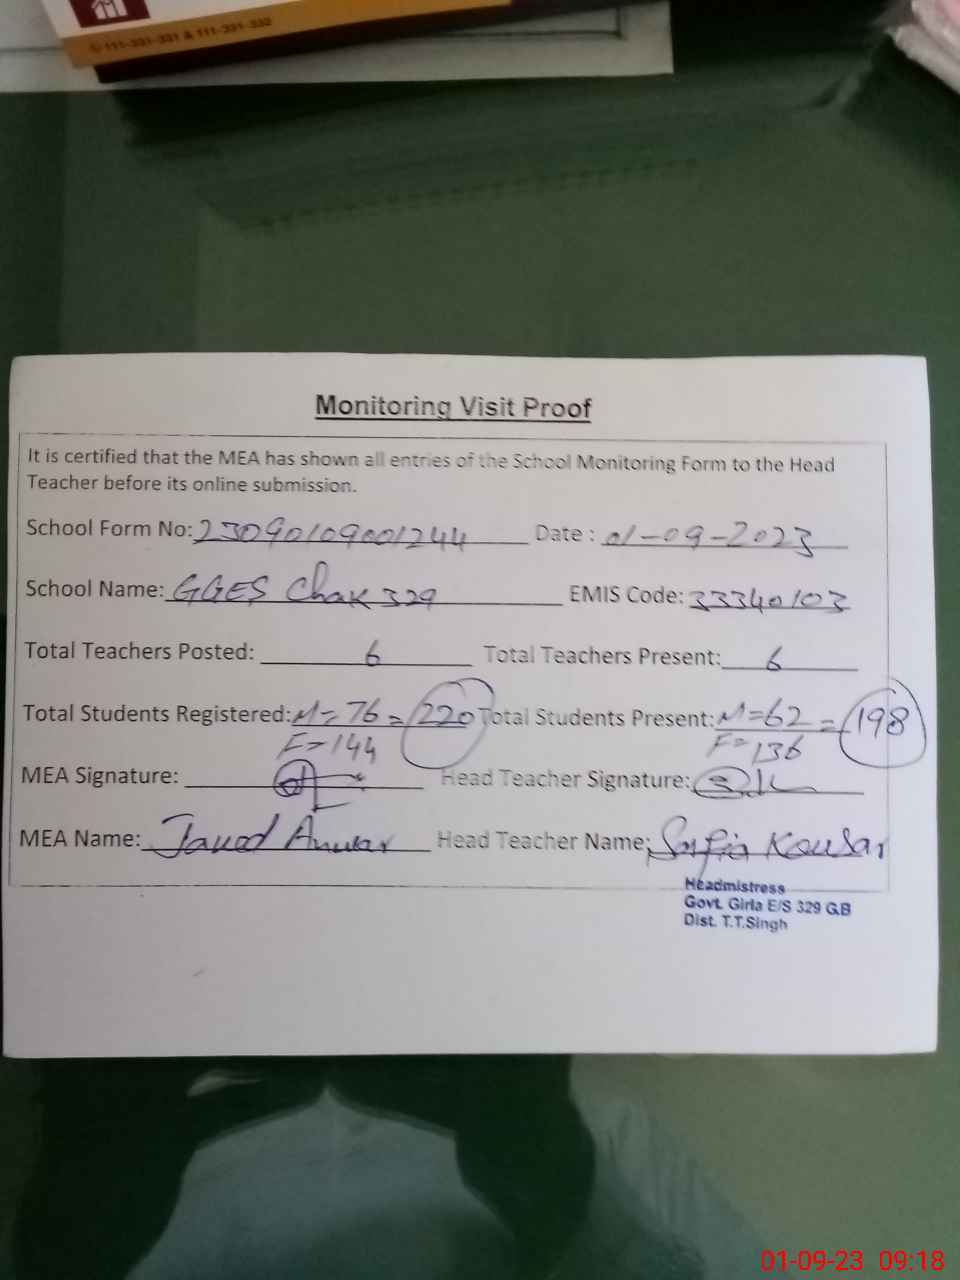 ✆ 111-331-331 & 111-331-332
Monitoring Visit Proof
It is certified that the MEA has shown all entries of the School Monitoring Form to the Head
Teacher before its online submission.
School Form No: 23090109001244 Date : 01-09-2023
School Name: GGES Chak 329 EMIS Code: 33340103
Total Teachers Posted: 6 Total Teachers Present: 6
Total Students Registered: M=76 = 220 Total Students Present: M=62 = 198
F=144 F=136
MEA Signature: Head Teacher Signature:
MEA Name: Javed Anwar Head Teacher Name: Safia Kousar
Headmistress
Govt. Girls E/S 329 G.B
Dist. T.T.Singh
01-09-23 09:18